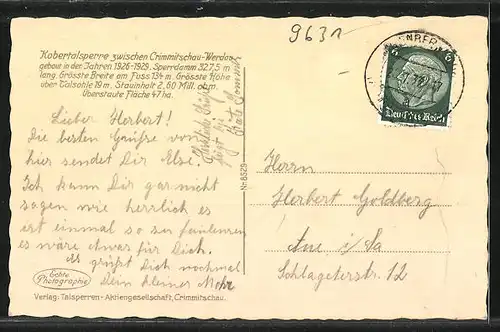 9631
Kobertalsperre zwischen Crimmitschau-Werdau,
gebaut in den Jahren 1926-1929. Sperrdamm 327,5 m
lang. Grösste Breite am Fuss 134 m. Grösste Höhe
über Talsohle 19 m. Stauinhalt 2,60 Mill. cbm.
Überstaute Fläche 47 ha.
Lieber Herbert!
Die besten Grüsse von
hier sendet Dir Else.
Ich kann Dir gar nicht
sagen wie herrlich es
ist einmal so
es wäre etwas für Dich.
Es grüßt Dich nochmal
Dein kleiner
Echte
Photographie
Verlag: Talsperren-Aktiengesellschaft, Crimmitschau.
Nr. 8529
6 6
Deutsches Reich
Herrn
Herbert Goldberg
Aue i/Sa
Schlageterstr. 12